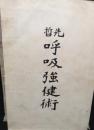 先哲
呼吸強健術